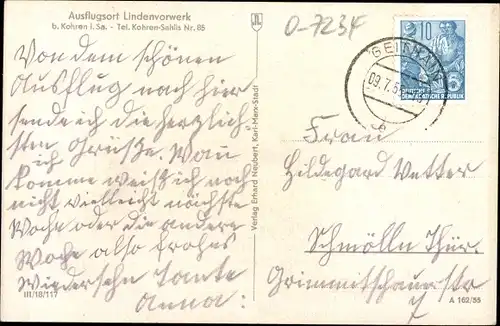 Ausflugsort Lindenvorwerk
b. Kohren i. Sa. - Tel. Kohren-Sahlis Nr. 85
Von dem schönen
Ausflug nach hier
sende ich die herzlich
sten Grüße. Wan
ich
komme weiß ich noch
nicht vielleicht nächste
Woche oder die andere
Woche also frohes
Wiedersehn Tante
Anna.
III/18/117
Verlag Erhard Neubert, Karl-Marx-Stadt
0-7234
10
DEUTSCHE
DEMOKRATISCHE REPUBLIK
GEITHAIN
09.7.5
Frau
Hildegard Vetter
Schmölln Thür.
Grimmitschauerstr
7
A 162/55